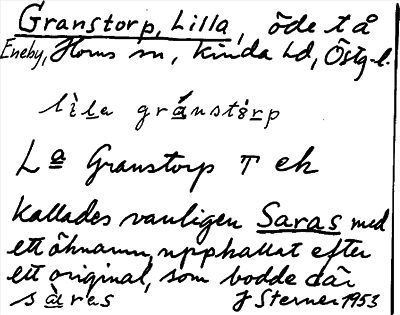 Granstorp, Lilla, öde t å
Eneby, Horns sn, Kinda hd, Östg. l.
lìla gránstòrp
La Granstorp T ek
Kallades vanligen Saras med
ett öknamn, uppkallat efter
ett original, som bodde där
sàras J Sterner 1953